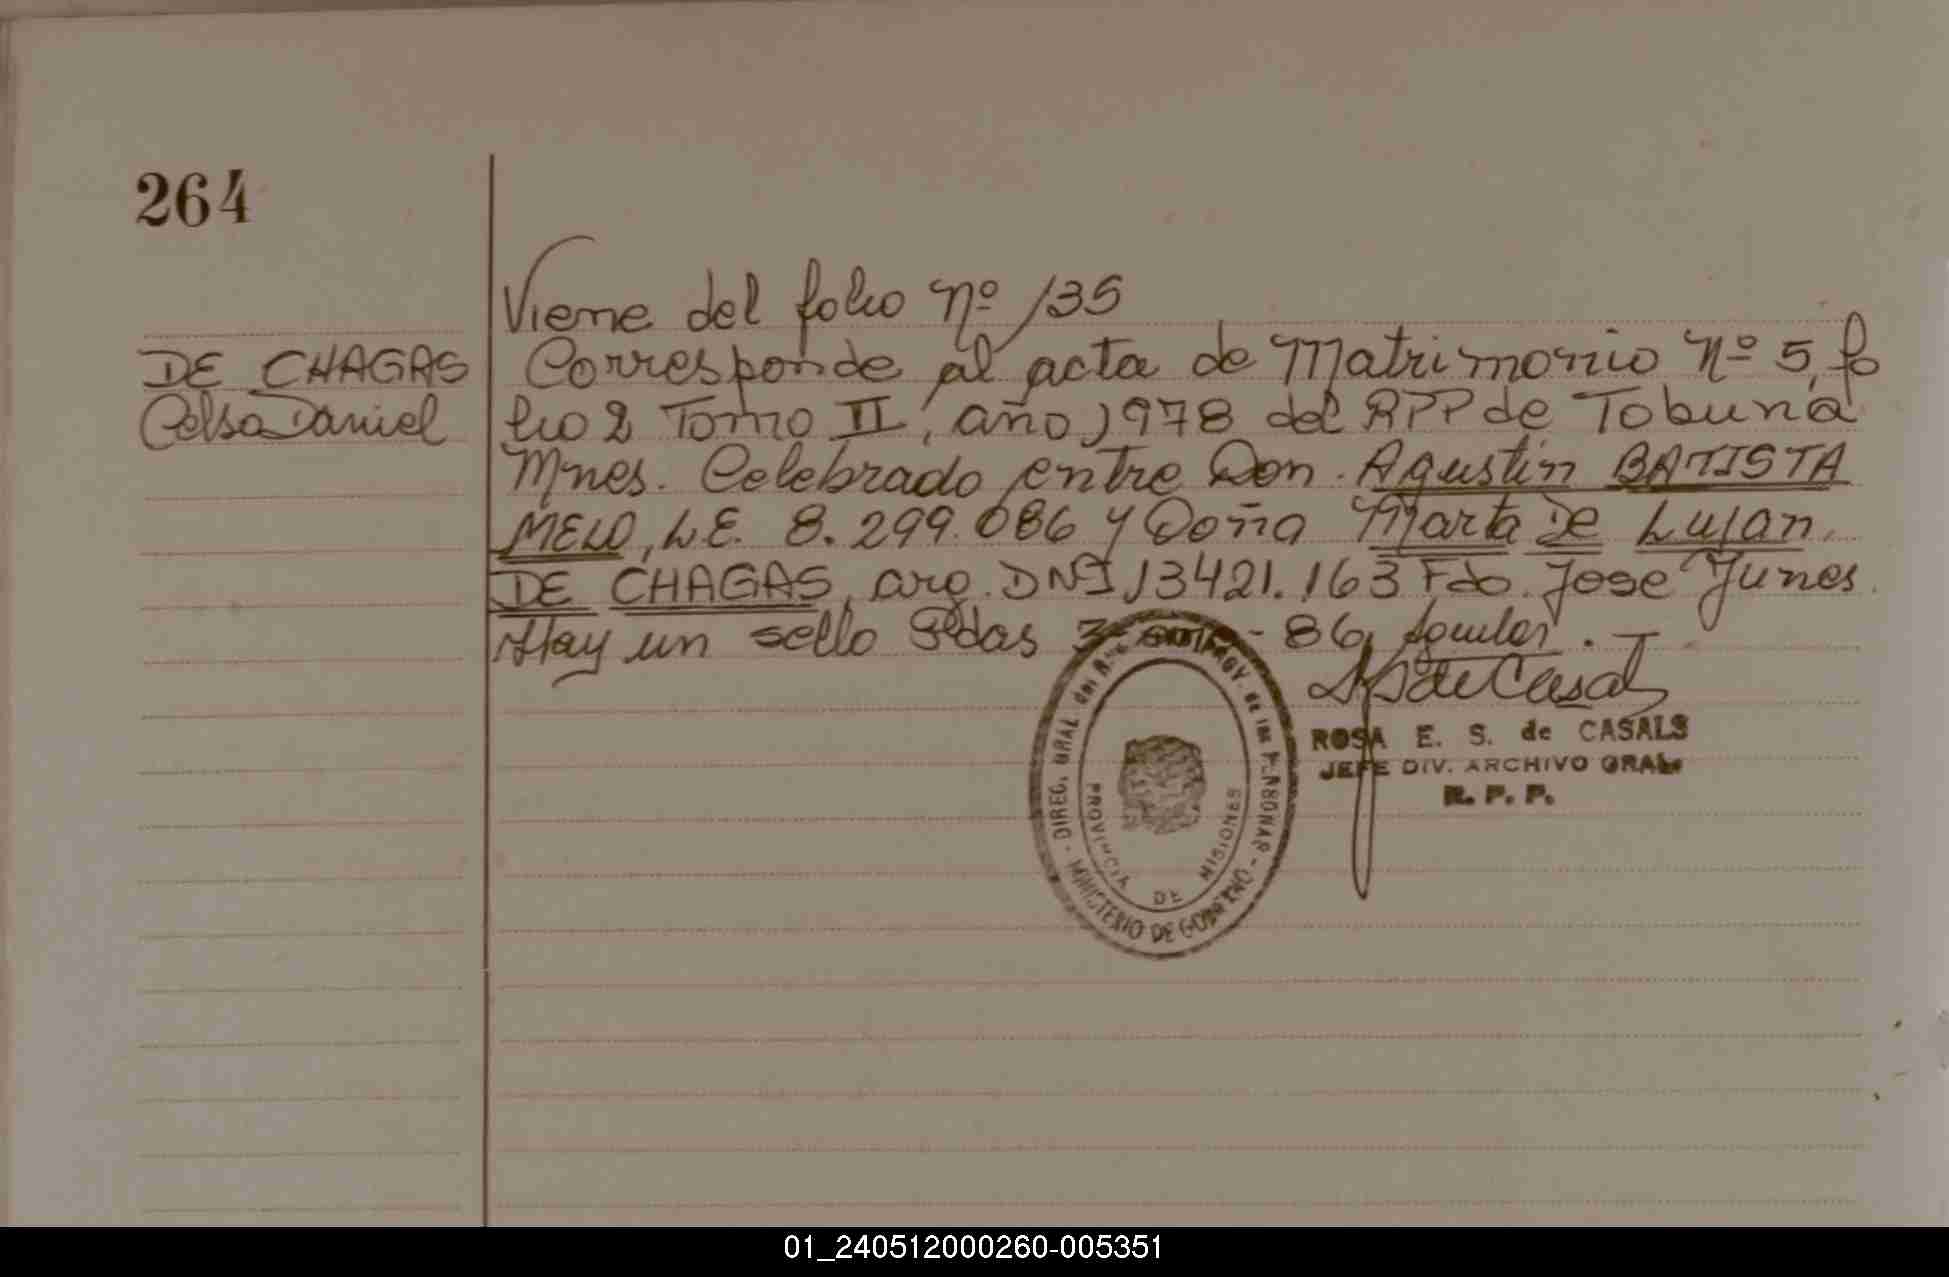 264
Viene del folio Nº 135
DE CHAGAS
Celso Daniel
Corresponde al acta de Matrimonio Nº 5, fo
lio 2 Tomo II, año 1978 del RPP de Tobuna
Mnes. Celebrado entre Don. Agustin BATISTA
MELO, L.E. 8.299.086 y Doña Marta De Lujan
DE CHAGAS, arg. DNI 13421.163 Fdo. Jose Yunes.
Hay un sello Pdas 86
DIREC. GRAL del de las PERSONAS
MINISTERIO DE GOBIERNO
PROVINCIA DE MISIONES
de Casals
ROSA E. S. de CASALS
JEFE DIV. ARCHIVO GRAL.
R. P. P.
01_240512000260-005351